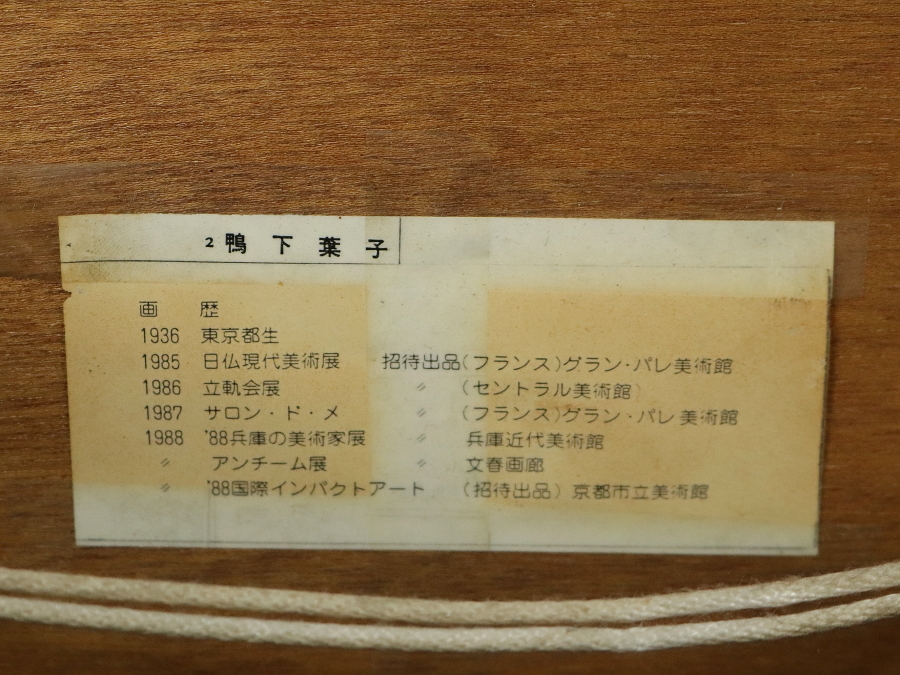 2 鴨下葉子
画 歴
1936 東京都生
1985 日仏現代美術展 招待出品(フランス)グラン・パレ美術館
1986 立軌会展 〃 (セントラル美術館)
1987 サロン・ド・メ 〃 (フランス)グラン・パレ美術館
1988 '88兵庫の美術家展 〃 兵庫近代美術館
〃 アンチーム展 〃 文春画廊
〃 '88国際インパクトアート (招待出品) 京都市立美術館